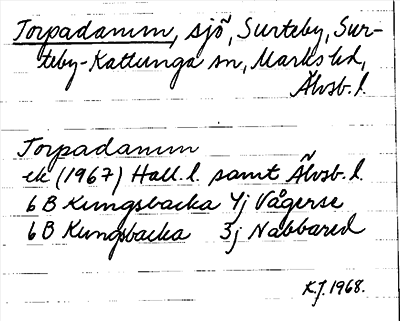 Torpadamm, sjö, Surteby, Sur-
teby-Kattunga sn, Marks hd,
Älvsb. l.
Torpadamm
ek (1967) Hall. l. samt Älvsb. l.
6 B Kungsbacka 4j Vågerse
6 B Kungsbacka 3j Nabbared
K.J. 1968.